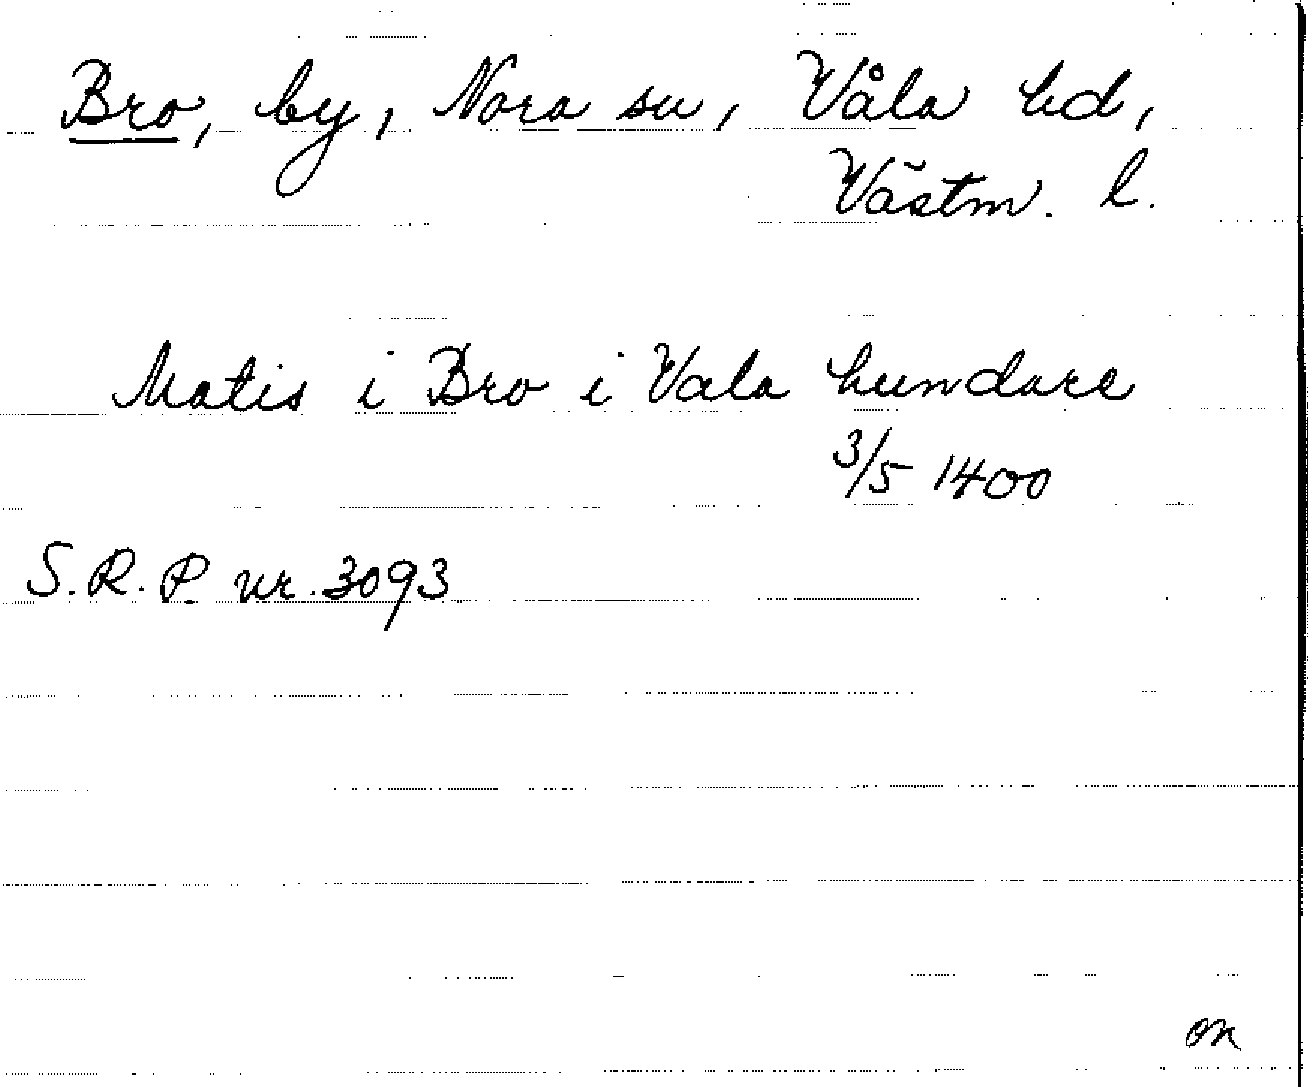 Bro, by, Nora sn, Våla hd,
Västm. l.
Matis i Bro i Vala hundare
3/5 1400
S.R.P. nr. 3093